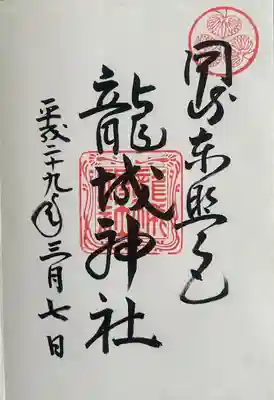 岡崎東照宮
龍城神社
平成二十九年三月七日